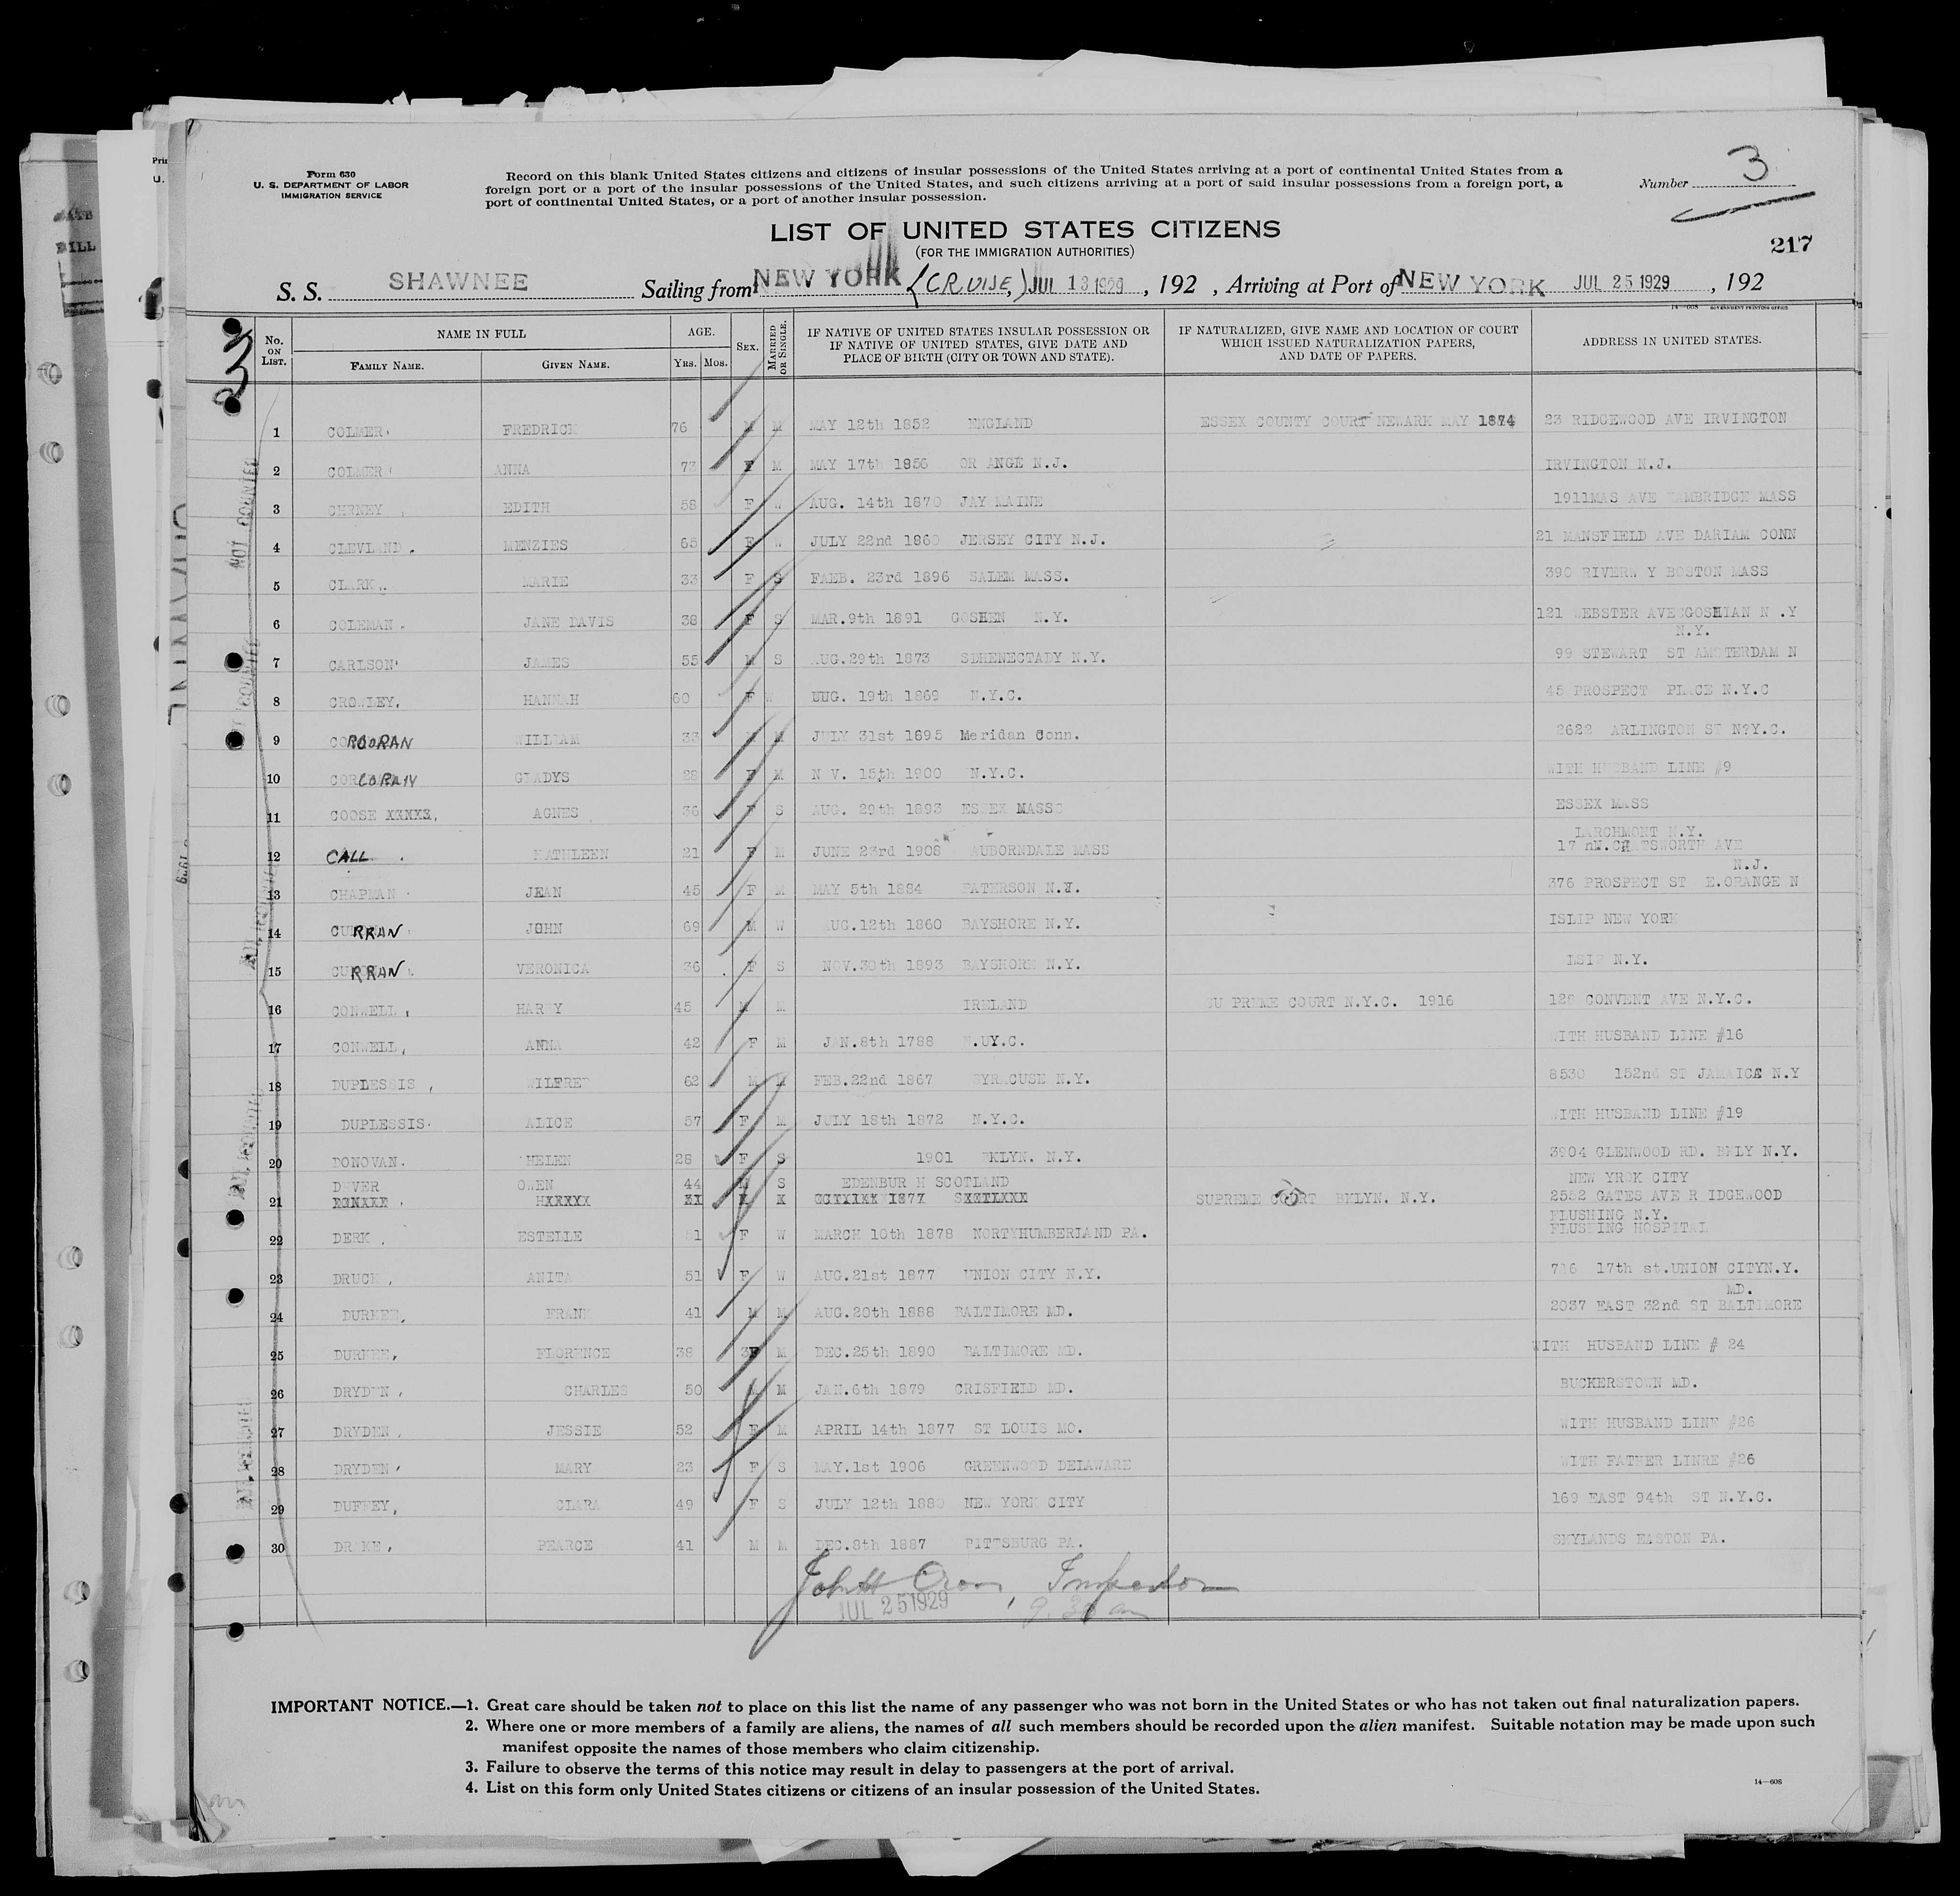 Form 630
U. S. DEPARTMENT OF LABOR
IMMIGRATION SERVICE
Record on this blank United States citizens and citizens of insular possessions of the United States arriving at a port of continental United States from a
foreign port or a port of the insular possessions of the United States, and such citizens arriving at a port of said insular possessions from a foreign port, a
port of continental United States, or a port of another insular possession.
Number 3
LIST OF UNITED STATES CITIZENS
(FOR THE IMMIGRATION AUTHORITIES)
217
S. S. SHAWNEE Sailing from NEW YORK (CRUISE,) JUL 13 1929, 192 , Arriving at Port of NEW YORK JUL 25 1929, 192
No. ON LIST. NAME IN FULL FAMILY NAME. GIVEN NAME. AGE. YRS. MOS. SEX. MARRIED OR SINGLE. IF NATIVE OF UNITED STATES INSULAR POSSESSION OR IF NATIVE OF UNITED STATES, GIVE DATE AND PLACE OF BIRTH (CITY OR TOWN AND STATE). IF NATURALIZED, GIVE NAME AND LOCATION OF COURT WHICH ISSUED NATURALIZATION PAPERS, AND DATE OF PAPERS. ADDRESS IN UNITED STATES.
1 COLMER FREDRICK 76 M M MAY 12th 1852 ENGLAND ESSEX COUNTY COURT NEWARK MAY 1874 23 RIDGEWOOD AVE IRVINGTON
2 COLMER ANNA 73 F M MAY 17th 1856 OR ANGE N.J. IRVINGTON N.J.
3 CHRNEY , EDITH 58 F W AUG. 14th 1870 JAY MAINE 1911MAS AVE CAMBRIDGE MASS
4 CLEVLAND . MENZIES 65 F W JULY 22nd 1860 JERSEY CITY N.J. 21 MANSFIELD AVE DARIAM CONN
5 CLARK, MARIE 33 F S FAEB. 23rd 1896 SALEM MASS. 390 RIVERW Y BOSTON MASS
6 COLEMAN . JANE DAVIS 38 F S MAR.9th 1891 GOSHEN N.Y. 121 WEBSTER AVE GOSHIAN N .Y
N.Y.
7 CARLSON JAMES 55 M S AUG.29th 1873 SEHENECTADY N.Y. 99 STEWART ST AMSTERDAM N
8 CROWLEY, HANNAH 60 F W UUG. 19th 1869 N.Y.C. 45 PROSPECT PLACE N.Y.C
9 CORCORAN WILLIAM 33 M JULY 31st 1895 Meridan Conn. 2622 ARLINGTON ST N?Y.C.
10 CORCORAN GLADYS 28 F M N V. 15th 1900 N.Y.C. WITH HUSBAND LINE #9
11 COOSE XXXXX, AGNES 36 F S AUG. 29th 1893 ESSEX MASS ESSEX MASS
LARCHMONT N.Y.
12 CALL . KATHLEEN 21 F M JUNE 23rd 1908 AUBORNDALE MASS 17 N.CHATSWORTH AVE
N.J.
13 CHAPMAN JEAN 45 F M MAY 5th 1884 PATERSON N.J. 376 PROSPECT ST E.ORANGE N
14 CURRAN JOHN 69 M W AUG.12th 1860 BAYSHORE N.Y. ISLIP NEW YORK
15 CURRAN VERONICA 36 F S NOV.30th 1893 BAYSHORE N.Y. ISIP N.Y.
16 CONWELL, HAR Y 45 M M IRELAND SU PREME COURT N.Y.C. 1916 128 CONVENT AVE N.Y.C.
17 CONWELL, ANNA 42 F M JAN.8th 1788 N.UY.C. WITH HUSBAND LINE #16
18 DUPLESSIS , WILFRED 62 M M FEB.22nd 1867 SYRACUSE N.Y. 8530 152nd ST JAMAICA N.Y
19 DUPLESSIS ALICE 57 F M JULY 18th 1872 N.Y.C. WITH HUSBAND LINE #19
20 DONOVAN. HELEN 28 F S 1901 BKLYN. N.Y. 3904 GLENWOOD RD. BKLY N.Y.
D VER OWEN 44 M S EDENBUR H SCOTLAND NEW YROK CITY
21 SUPREME COURT BKLYN. N.Y. 2552 GATES AVE R IDGEWOOD
FLUSHING N.Y.
22 DERK , ESTELLE 51 F W MARCH 10th 1878 NORTYHUMBERLAND PA. FLUSHING HOSPITAL
23 DRUCK , ANITA 51 F W AUG.21st 1877 UNION CITY N.Y. 716 17th st.UNION CITYN.Y.
MD.
24 DURKEE, FRANK 41 M M AUG.20th 1888 BALTIMORE MD. 2037 EAST 32nd ST BALTIMORE
25 DURKEE, FLORENCE 38 F M DEC.25th 1890 BALTIMORE MD. WITH HUSBAND LINE # 24
26 DRYDEN , CHARLES 50 M M JAN.6th 1879 CRISFIELD MD. BUCKERSTOWN MD.
27 DRYDEN , JESSIE 52 F M APRIL 14th 1877 ST LOUIS MO. WITH HUSBAND LINE #26
28 DRYDEN MARY 23 F S MAY.1st 1906 GREENWOOD DELAWARE WITH FATHER LINRE #26
29 DUFFEY, CLARA 49 F S JULY 12th 1880 NEW YORK CITY 169 EAST 94th ST N.Y.C.
30 DRAKE, PEARCE 41 M M DEC.8th 1887 PITTSBURG PA. SKYLANDS EASTON PA.
John H , Inspector
JUL 25 1929 9.30 am
IMPORTANT NOTICE.—1. Great care should be taken not to place on this list the name of any passenger who was not born in the United States or who has not taken out final naturalization papers.
2. Where one or more members of a family are aliens, the names of all such members should be recorded upon the alien manifest. Suitable notation may be made upon such
manifest opposite the names of those members who claim citizenship.
3. Failure to observe the terms of this notice may result in delay to passengers at the port of arrival.
4. List on this form only United States citizens or citizens of an insular possession of the United States.
14—608